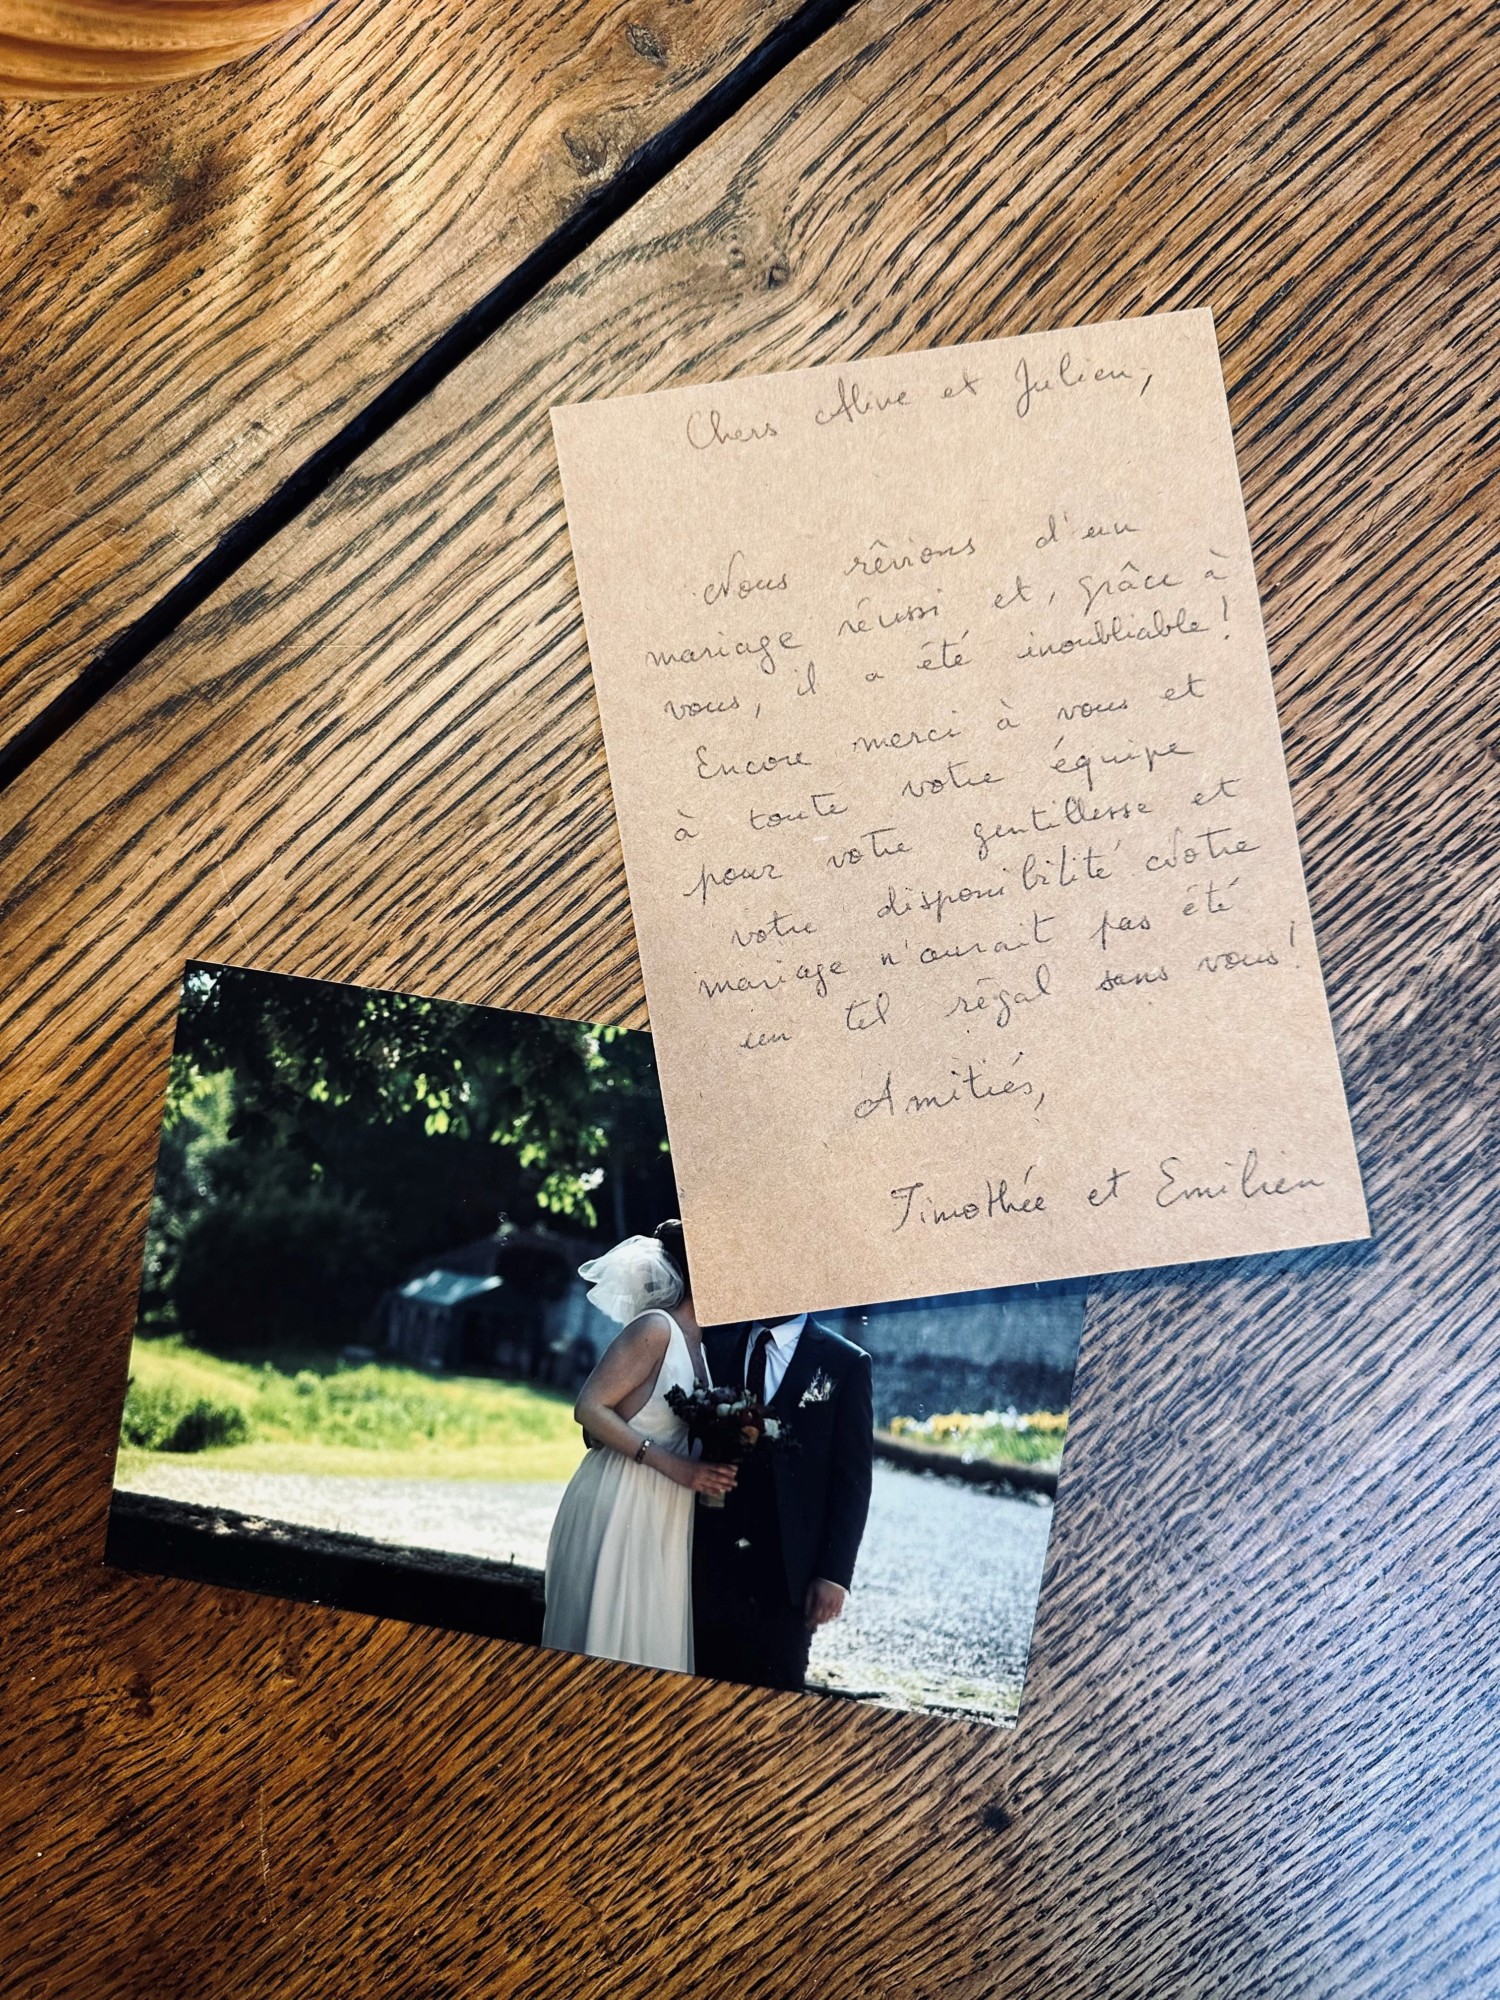 Chers Aline et Julien,
Nous rêvions d'un
mariage réussi et, grâce à
vous, il a été inoubliable !
Encore merci à vous et
à toute votre équipe
pour votre gentillesse et
votre disponibilité Notre
mariage n'aurait pas été
un tel régal sans vous !
Amitiés,
Timothée et Emilien